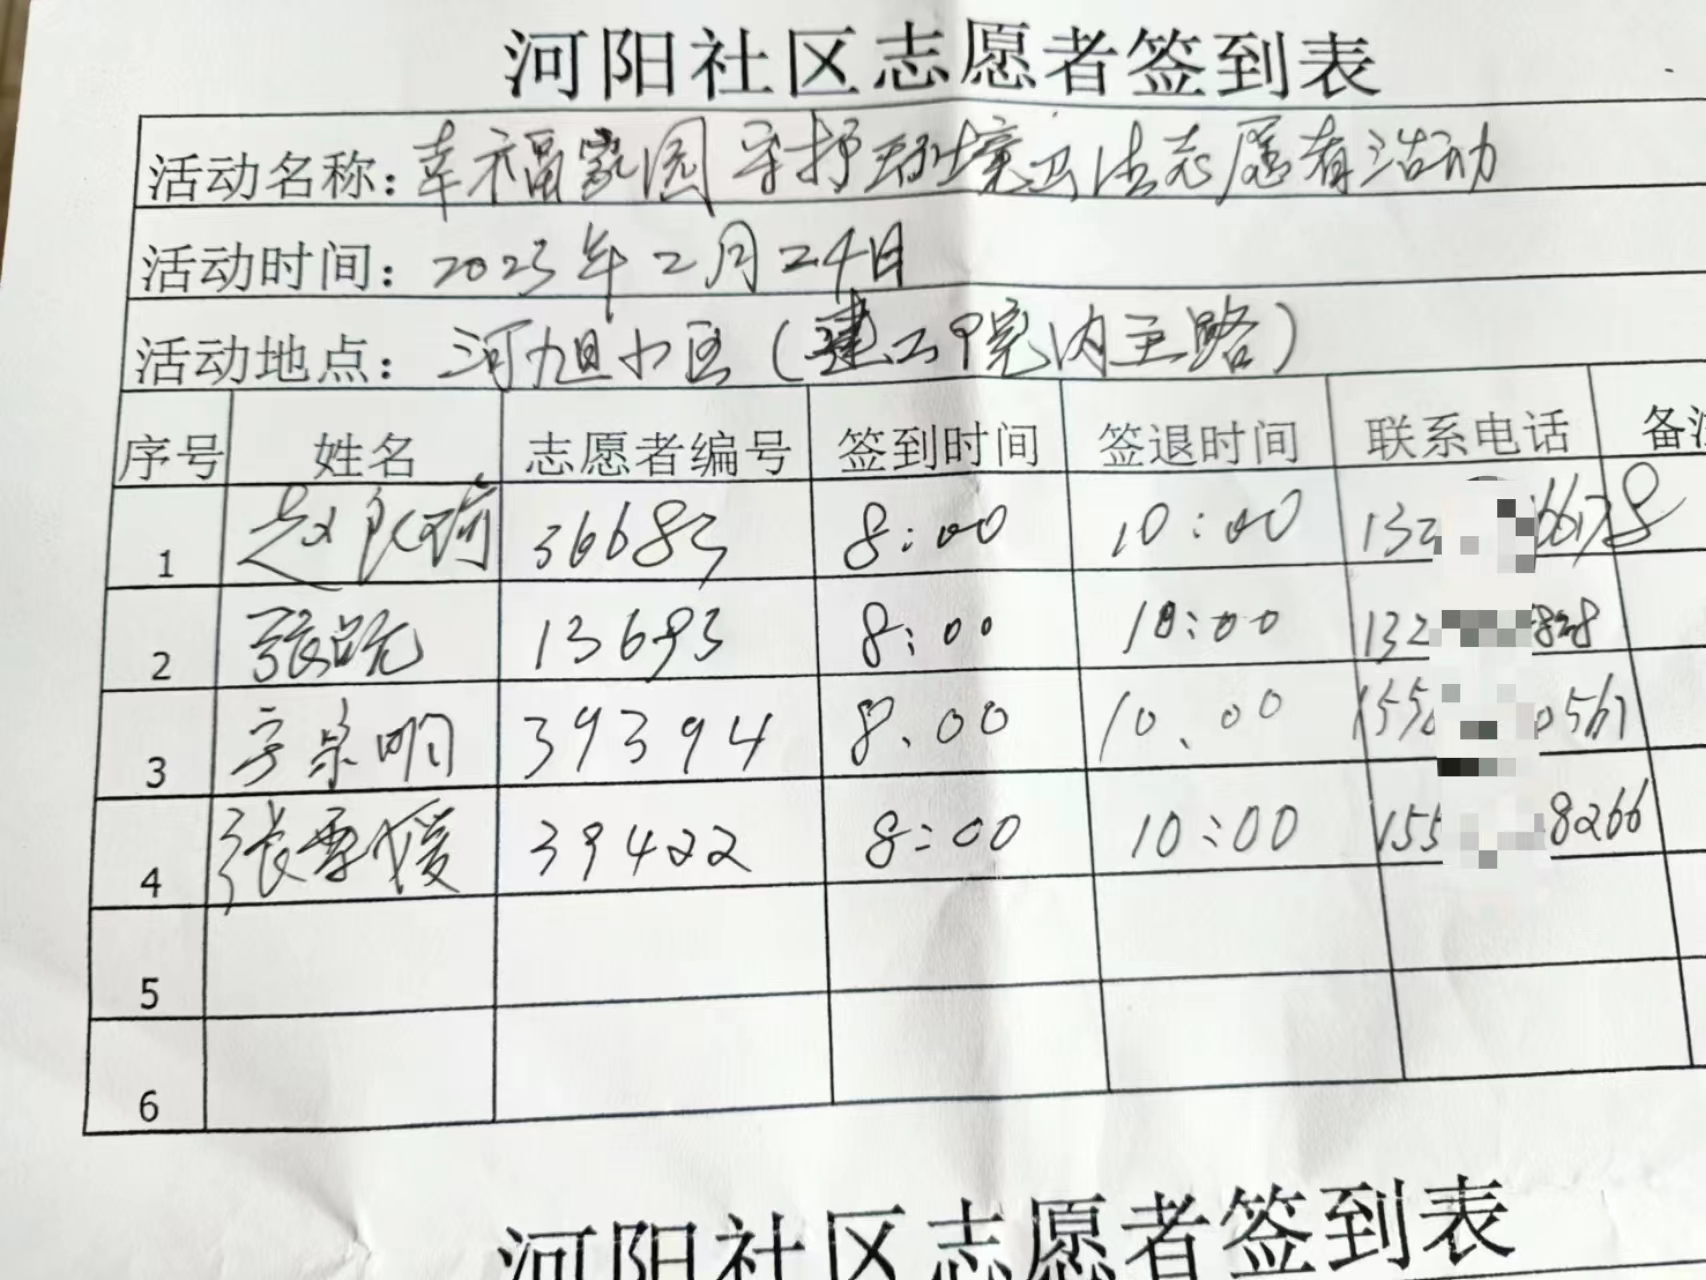 河阳社区志愿者签到表
活动名称：幸福家园 守护环境卫生志愿者活动
活动时间：2023年2月24日
活动地点：河旭小区（建工甲院内主路）
序号 姓名 志愿者编号 签到时间 签退时间 联系电话 备注
1 赵 36683 8:00 10:00 132 66178
2 张皓 13693 8:00 10:00 132 828
3 宗明 39394 8.00 10.00 155 0567
4 张雪媛 39422 8:00 10:00 155 8266
5
6
河阳社区志愿者签到表